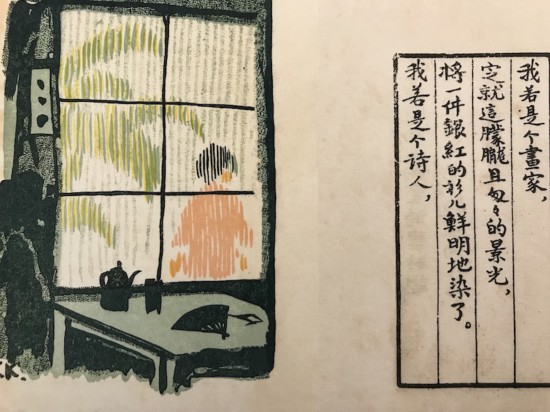 我若是个畫家，
定就這朦朧且匆々的景光，
將一件銀紅的衫儿鮮明地染了。
我若是个诗人，
K.K.